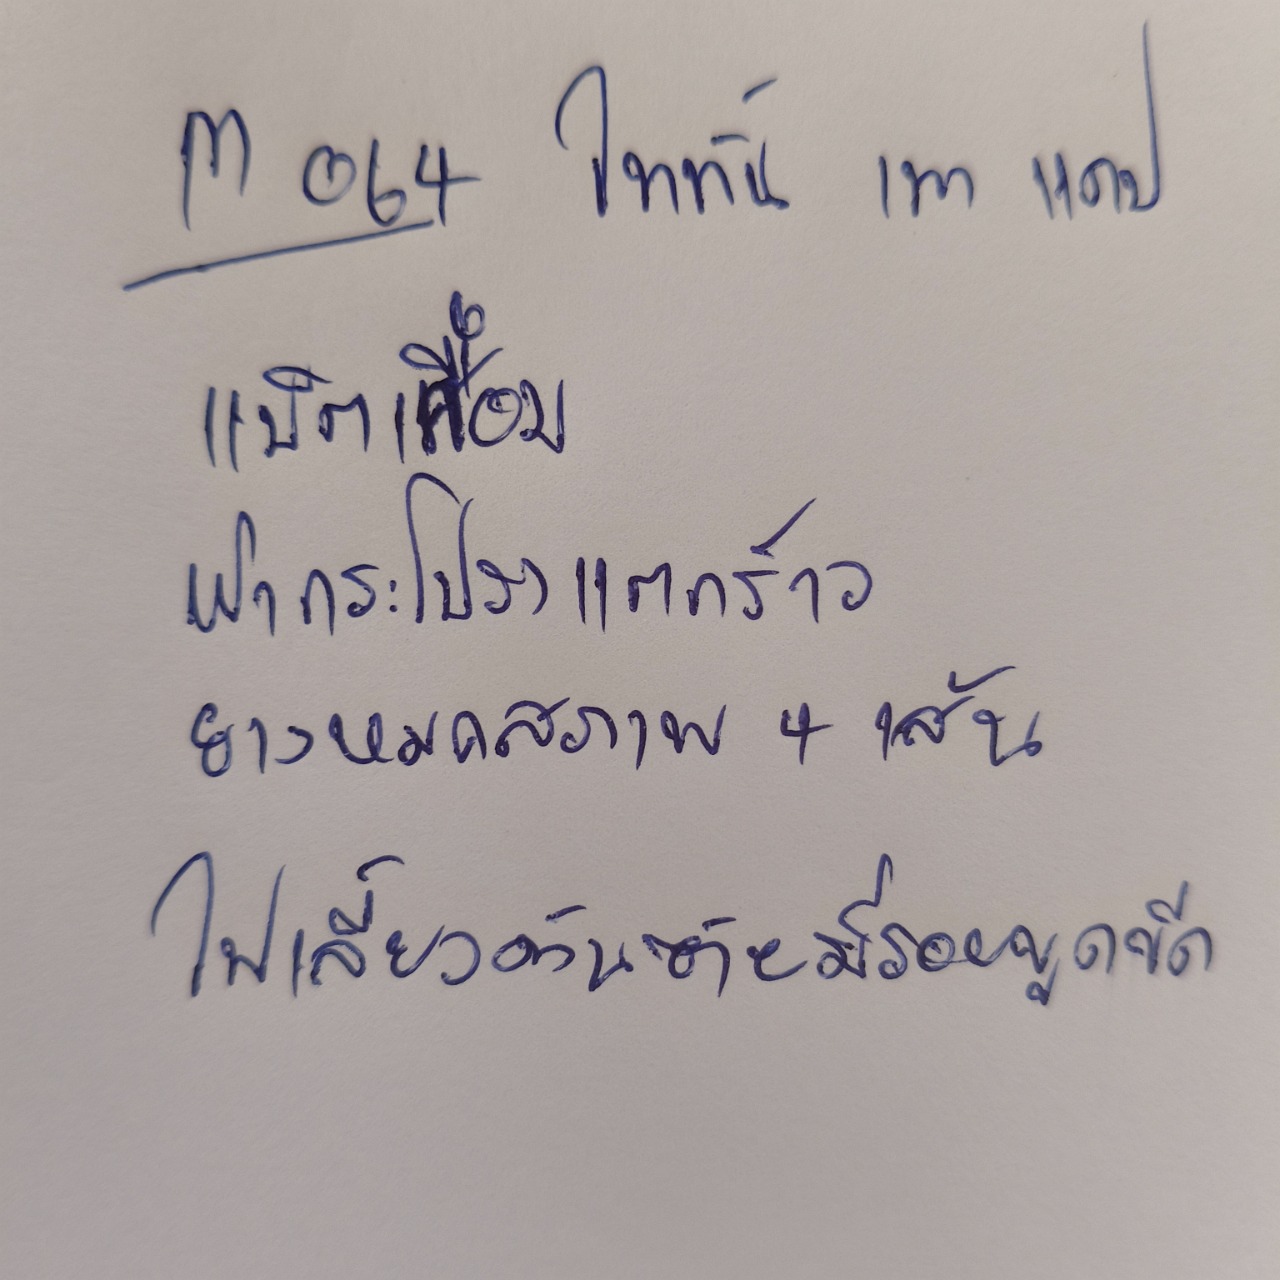 M 064 ไททัน เทา แคป
แบ็ตเสื่อม
ฝากระโปรงแตกร้าว
ยางหมดสภาพ 4 เส้น
ไฟเลี้ยวด้านซ้ายมีรอยขูดขีด